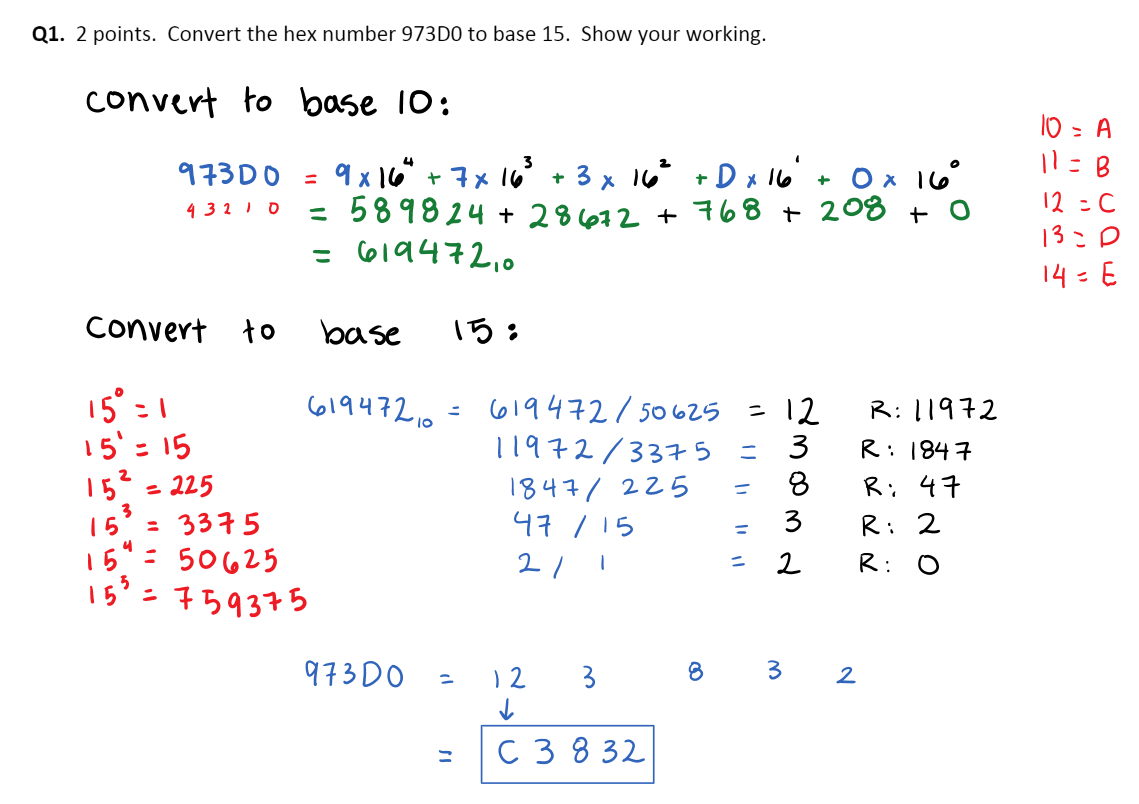 Q1. 2 points. Convert the hex number 973D0 to base 15. Show your working.
convert to base 10:
10 = A
11 = B
12 = C
13 = D
14 = E
973D0 = 9 x 16⁴ + 7 x 16³ + 3 x 16² + D x 16¹ + 0 x 16⁰
4 3 2 1 0 = 589824 + 28672 + 768 + 208 + 0
= 619472₁₀
convert to base 15:
15⁰ = 1
15¹ = 15
15² = 225
15³ = 3375
15⁴ = 50625
15⁵ = 759375
619472₁₀ = 619472 / 50625 = 12 R: 11972
11972 / 3375 = 3 R: 1847
1847 / 225 = 8 R: 47
47 / 15 = 3 R: 2
2 / 1 = 2 R: 0
973D0 = 12 3 8 3 2
↓
= C 3 8 3 2